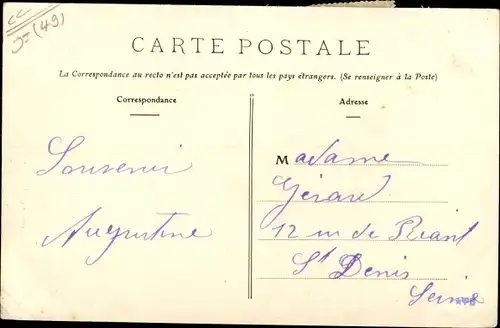 (49)
CARTE POSTALE
La Correspondance au recto n'est pas acceptée par tous les pays étrangers. (Se renseigner à la Poste)
Correspondance
Adresse
Souvenir
Augustine
Madame
Gérard
12 rue de
St Denis
Seine